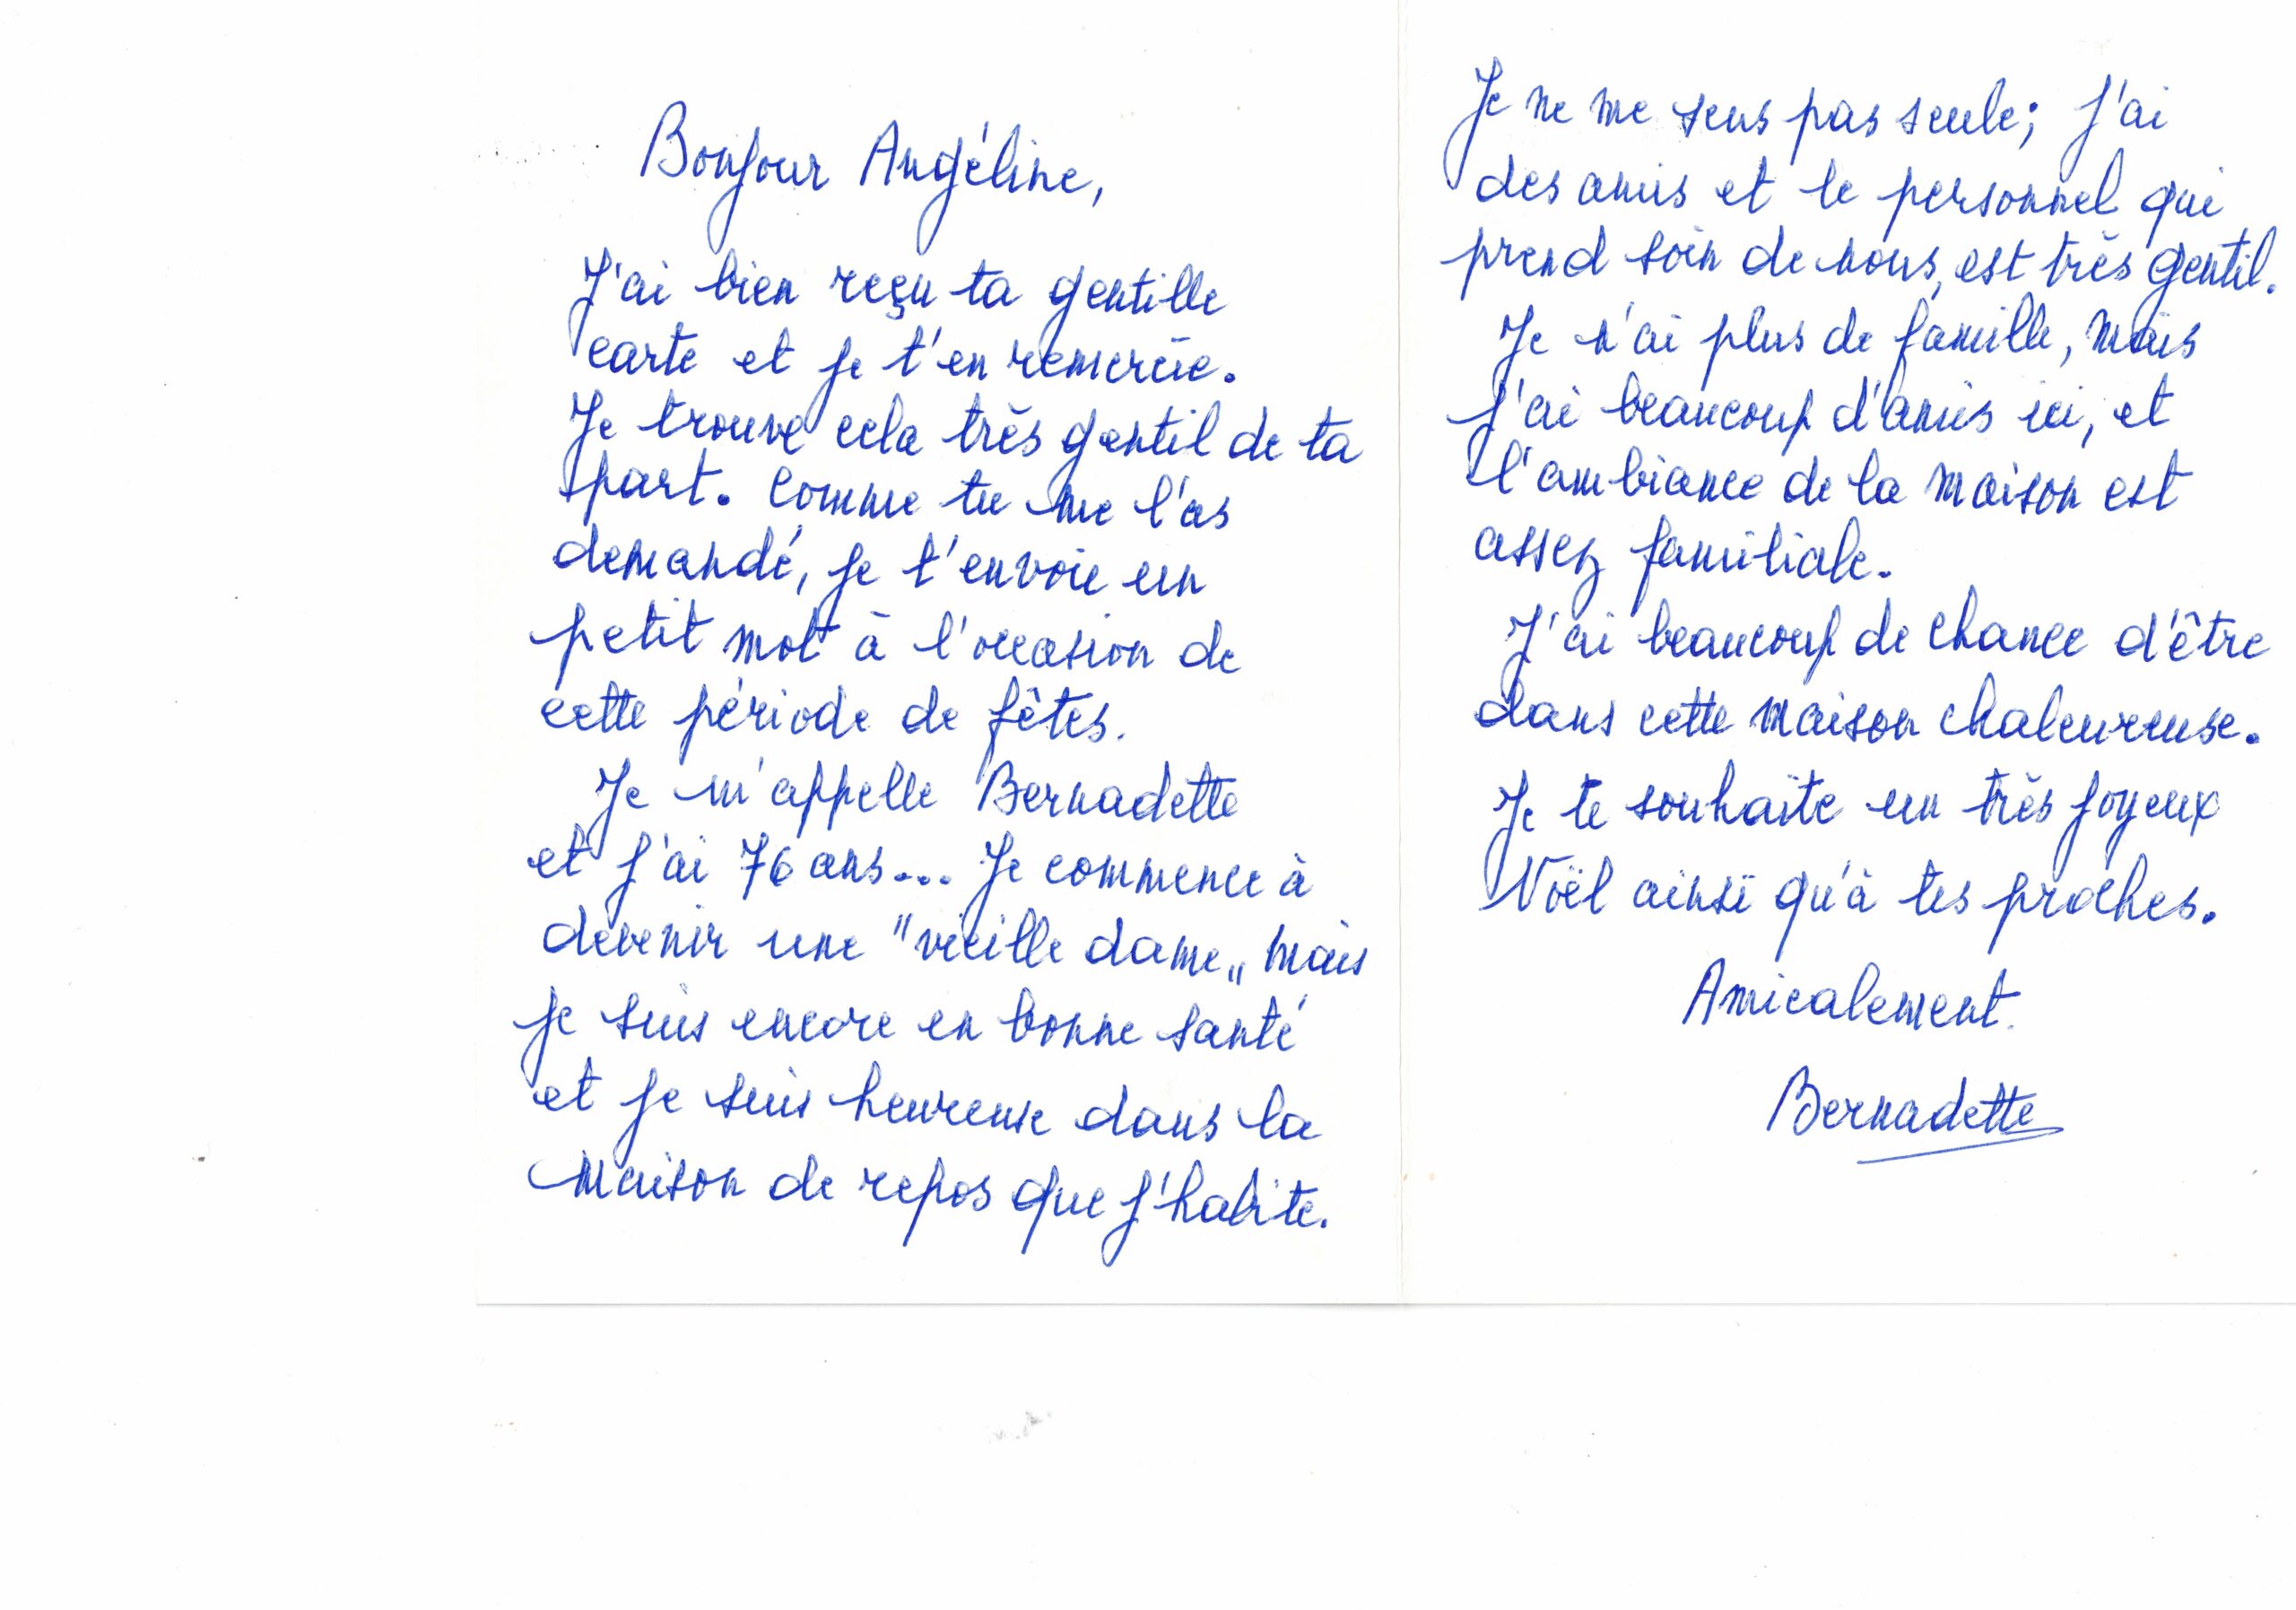 Bonjour Angéline,
J'ai bien reçu ta gentille
carte et je t'en remercie.
Je trouve cela très gentil de ta
part. Comme tu me l'as
demandé, je t'envoie un
petit mot à l'occasion de
cette période de fêtes.
Je m'appelle Bernadette
et j'ai 76 ans... Je commence à
devenir une "vieille dame„ mais
je suis encore en bonne santé
et je suis heureuse dans la
maison de repos que j'habite.
Je ne me sens pas seule; j'ai
des amis et le personnel qui
prend soin de nous, est très gentil.
Je n'ai plus de famille, mais
j'ai beaucoup d'amis ici, et
l'ambiance de la maison est
assez familiale.
J'ai beaucoup de chance d'être
dans cette maison chaleureuse.
Je te souhaite un très joyeux
Noël ainsi qu'à tes proches.
Amicalement.
Bernadette